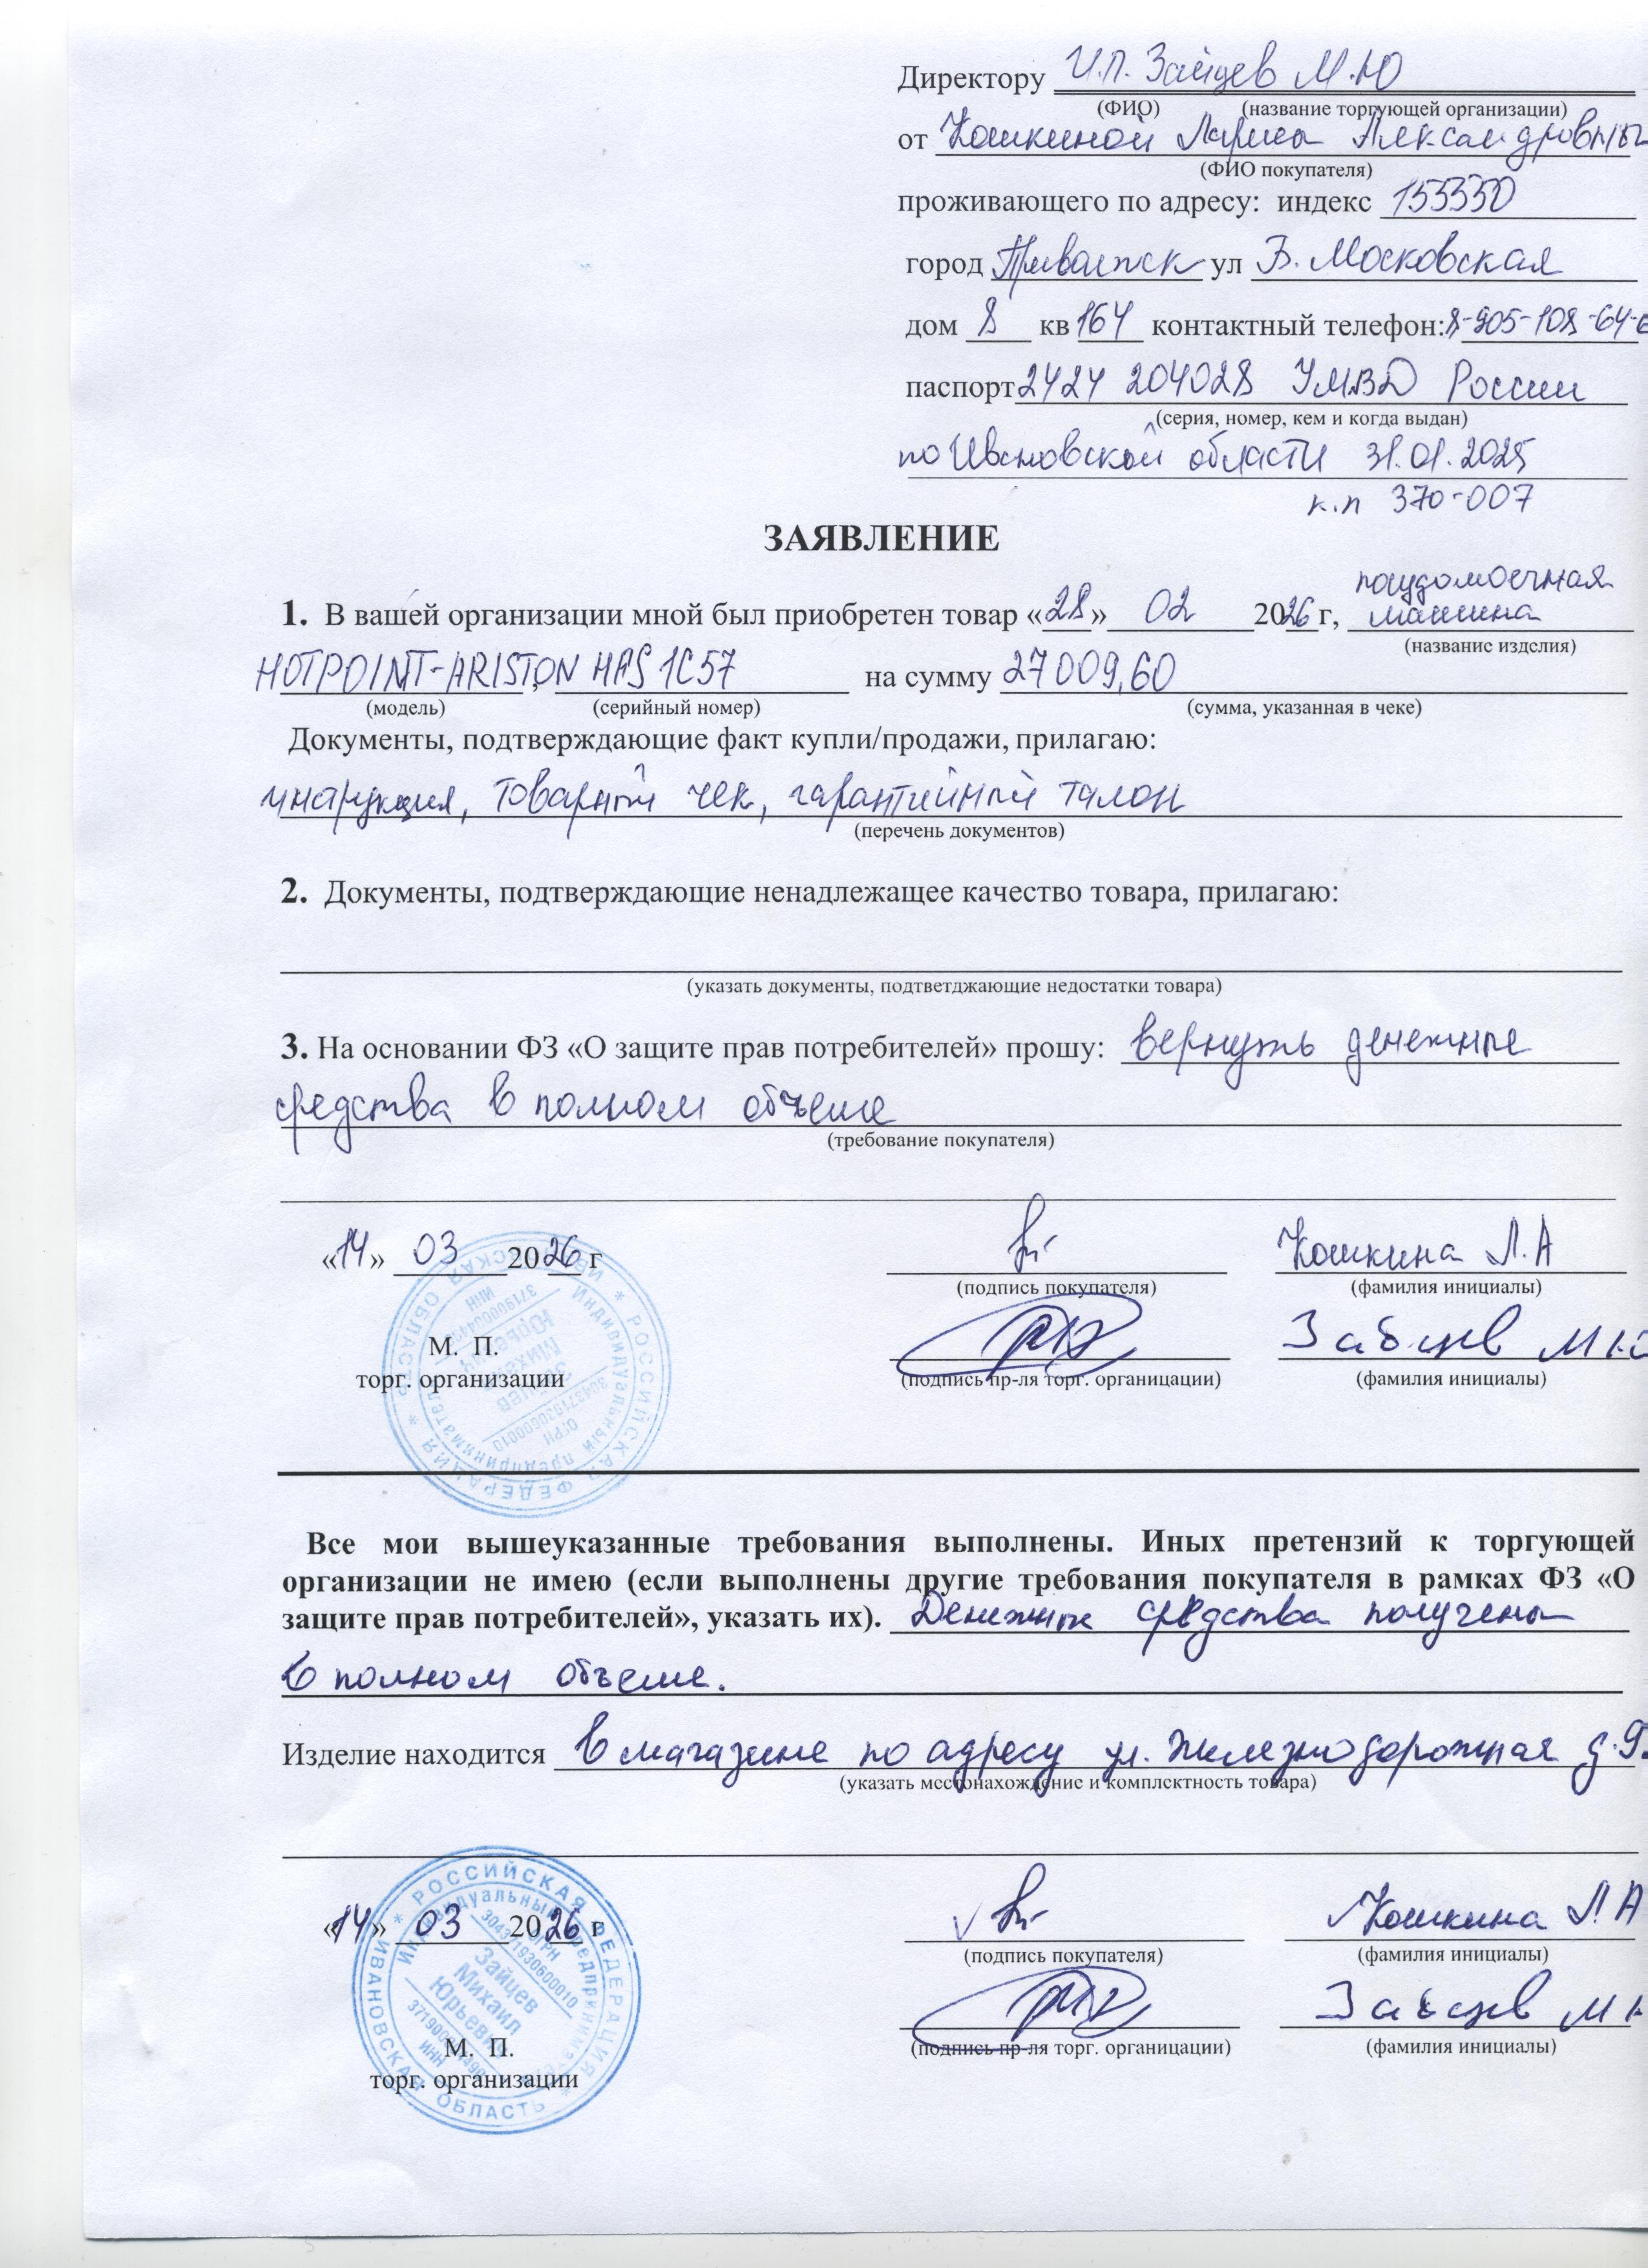 Директору И.П. Зайцев М.Ю
(ФИО) (название торгующей организации)
от Кошкиной Лариса Александровны
(ФИО покупателя)
проживающего по адресу: индекс 155550
город Приволжск ул Б. Московская
дом 8 кв 164 контактный телефон: 8-905-108-64-6
паспорт 2424 204028 УМВД России
(серия, номер, кем и когда выдан)
по Ивановской области 31.01.2025
к.п 370-007
ЗАЯВЛЕНИЕ
посудомоечная
1. В вашей организации мной был приобретен товар «28» 02 2026 г, машина
(название изделия)
HOTPOINT-ARISTON, HFS 1C57 на сумму 27 009,60
(модель) (серийный номер) (сумма, указанная в чеке)
Документы, подтверждающие факт купли/продажи, прилагаю:
товарный чек, гарантийный талон
(перечень документов)
2. Документы, подтверждающие ненадлежащее качество товара, прилагаю:
(указать документы, подтветджающие недостатки товара)
3. На основании ФЗ «О защите прав потребителей» прошу: вернуть денежные
средства в полном объеме
(требование покупателя)
«14» 03 2026 г Кошкина Л.А
(подпись покупателя) (фамилия инициалы)
М. П. Зайцев М.Ю
торг. организации (подпись пр-ля торг. органицации) (фамилия инициалы)
* РОССИЙСКАЯ ФЕДЕРАЦИЯ * ИВАНОВСКАЯ ОБЛАСТЬ
Индивидуальный предприниматель
ОГРН
304371930600010
Зайцев
Михаил
Юрьевич
ИНН
Все мои вышеуказанные требования выполнены. Иных претензий к торгующей
организации не имею (если выполнены другие требования покупателя в рамках ФЗ «О
защите прав потребителей», указать их). Денежные средства получены
в полном объеме.
Изделие находится в магазине по адресу ул. Железнодорожная д.
(указать местонахождение и комплектность товара)
«14» 03 2026 г Кошкина Л.А
(подпись покупателя) (фамилия инициалы)
М. П. Зайцев М
торг. организации (подпись пр-ля торг. органицации) (фамилия инициалы)
* РОССИЙСКАЯ ФЕДЕРАЦИЯ * ИВАНОВСКАЯ ОБЛАСТЬ
Индивидуальный предприниматель
ОГРН
304371930600010
Зайцев
Михаил
Юрьевич
ИНН